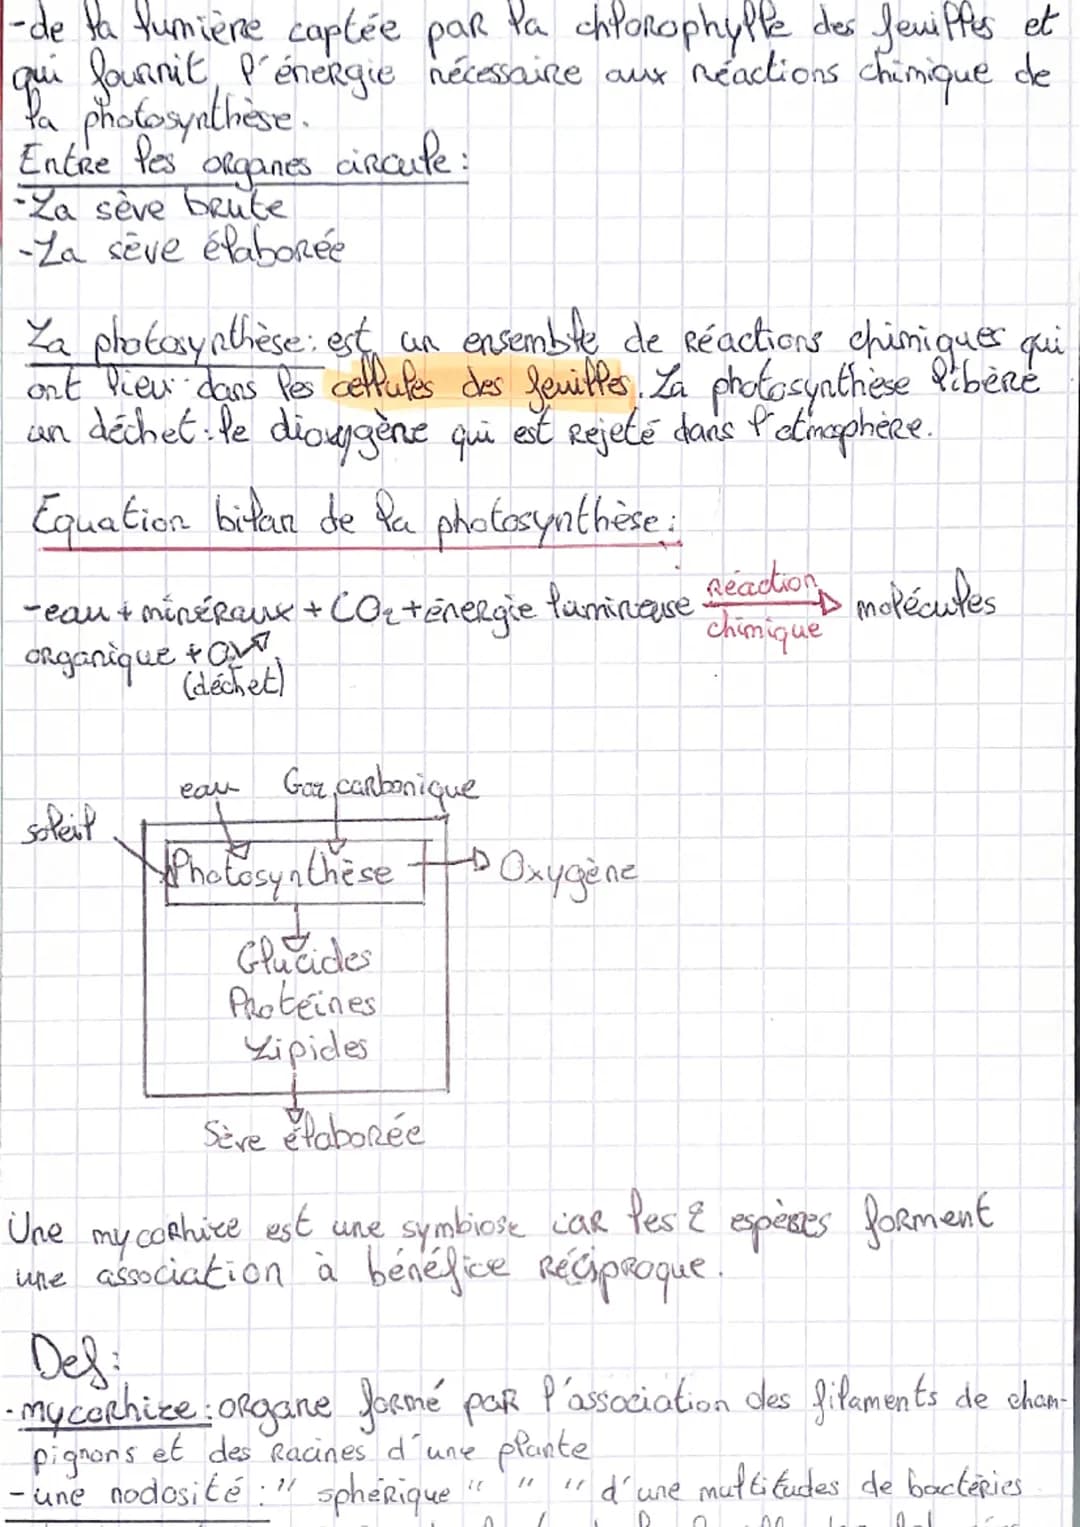 -de la lumière captée par la chlorophylle des feuilles et
qui fournit l'énergie nécessaire aux réactions chimique de
la photosynthèse.
Entre les organes circule :
-La sève brute
-La sève élaborée
La photosynthèse: est un ensemble de réactions chimiques qui
ont lieu dans les cellules des feuilles. La photosynthèse libère
un déchet: le dioxygène qui est rejeté dans l'atmosphère.
Equation bilan de la photosynthèse:
-eau + minéraux + CO2 + énergie lumineuse réaction chimique molécules
organique +
(déchet)
eau Gaz carbonique
soleil
Photosynthèse Oxygène
Glucides
Protéines
Lipides
Sève élaborée
Une mycorhize est une symbiose car les 2 espèces forment
une association à bénéfice réciproque.
Def:
-mycorhize: organe formé par l'association des filaments de cham-
pignons et des racines d'une plante
-une nodosité : " sphérique " " " d'une multitudes de bactéries